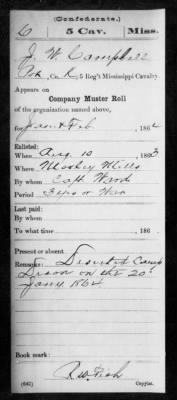 (Confederate.)
C 5 Cav. Miss.
J. W. Campbell
Pvt, Co. K, 5 Reg't Mississippi Cavalry.
Appears on
Company Muster Roll
of the organization named above,
for Jan & Feb, 1864
Enlisted:
When Aug. 10 1863
Where Mosley Mills
By whom Capt Ward
Period 3 yrs or War
Last paid:
By whom
To what time , 186
Present or absent
Remarks: Deserted Camp
on the 20
Jany 1864
Book mark:
(642) Copyist.